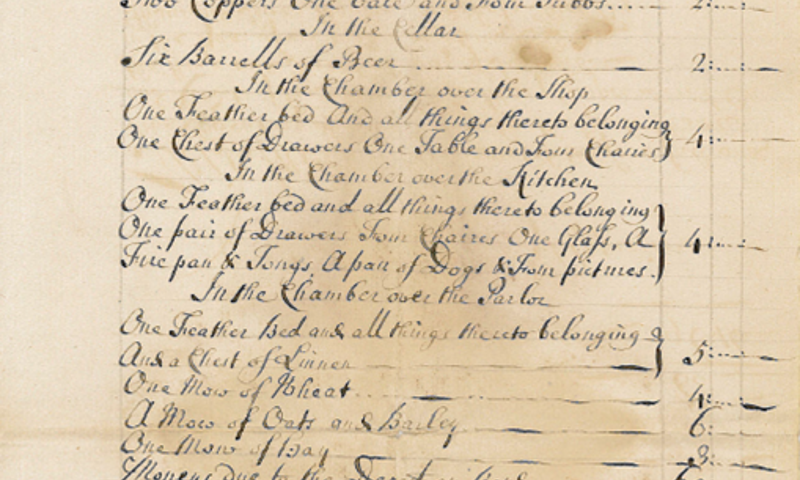 Two Coppers One Vate and Four Tubbs..... 2:
In the Cellar
Six Barrells of Beer ........ 2:
In the Chamber over the Shop
One Feather bed And all things thereto belonging
One Chest of Drawers One Table and Four Chaires } 4:
In the Chamber over the Kitchen
One Feather bed and all things thereto belonging
One pair of Drawers Four Chaires One Glass, A } 4:
Fire pan & Tongs, A pair of Dogs & Four pictures.
In the Chamber over the Parlor
One Feather Bed and all things thereto belonging
And a Chest of Linnen } 5:
One Mow of Wheat .. 4:
A Mow of Oats and Barley 6:
One Mow of Hay 3:
Moneys due to the